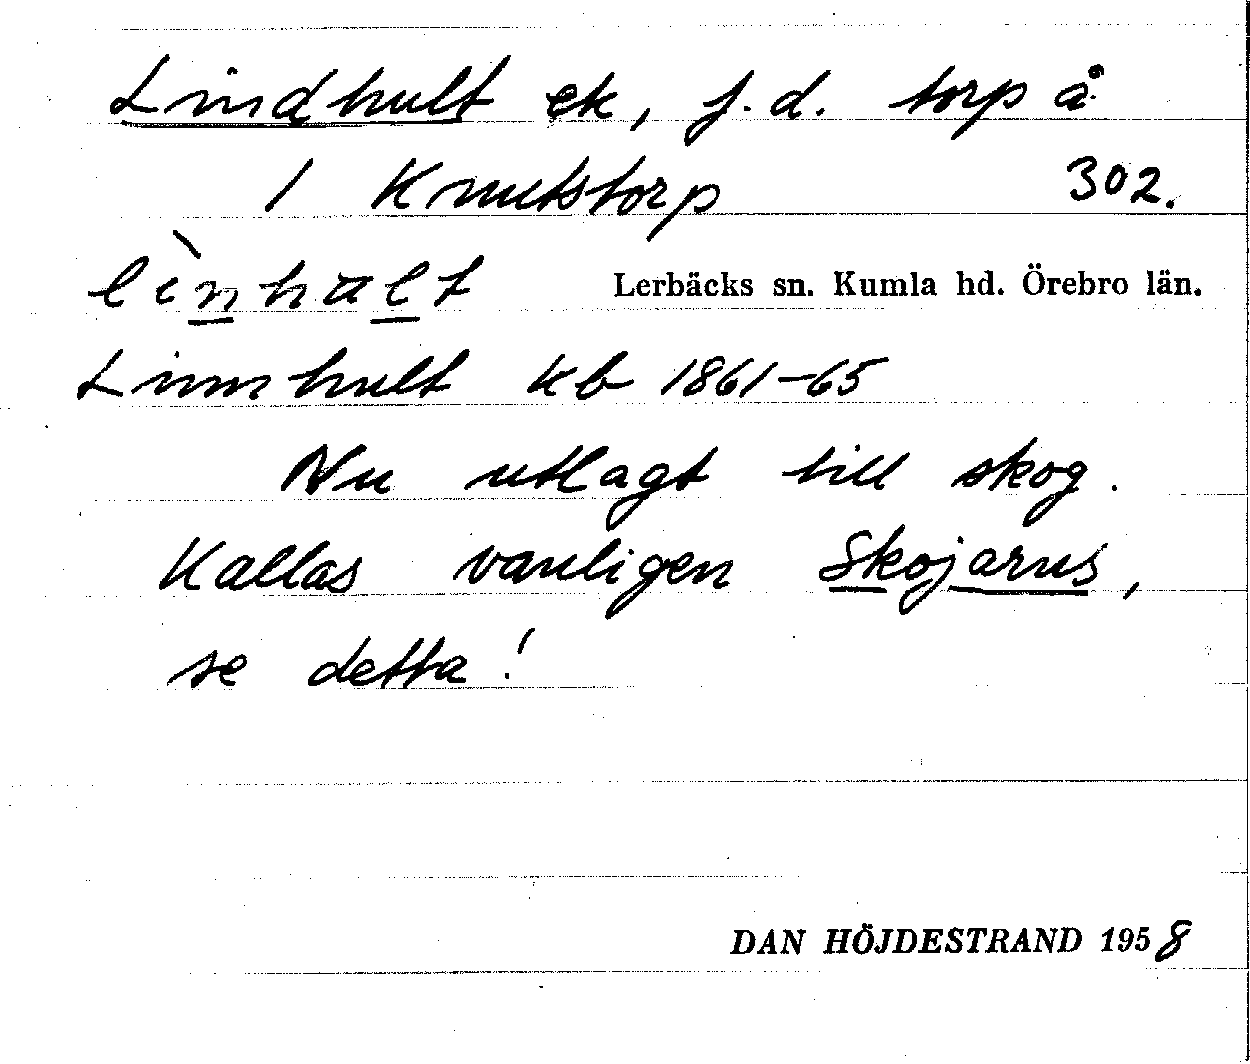 Lindhult ek, f.d. torp å
1 Knutstorp 302.
lìnhult Lerbäcks sn. Kumla hd. Örebro län.
Linnhult kb 1861-65
Nu utlagt till skog.
Kallas vanligen Skojarns,
se detta!
DAN HÖJDESTRAND 1958